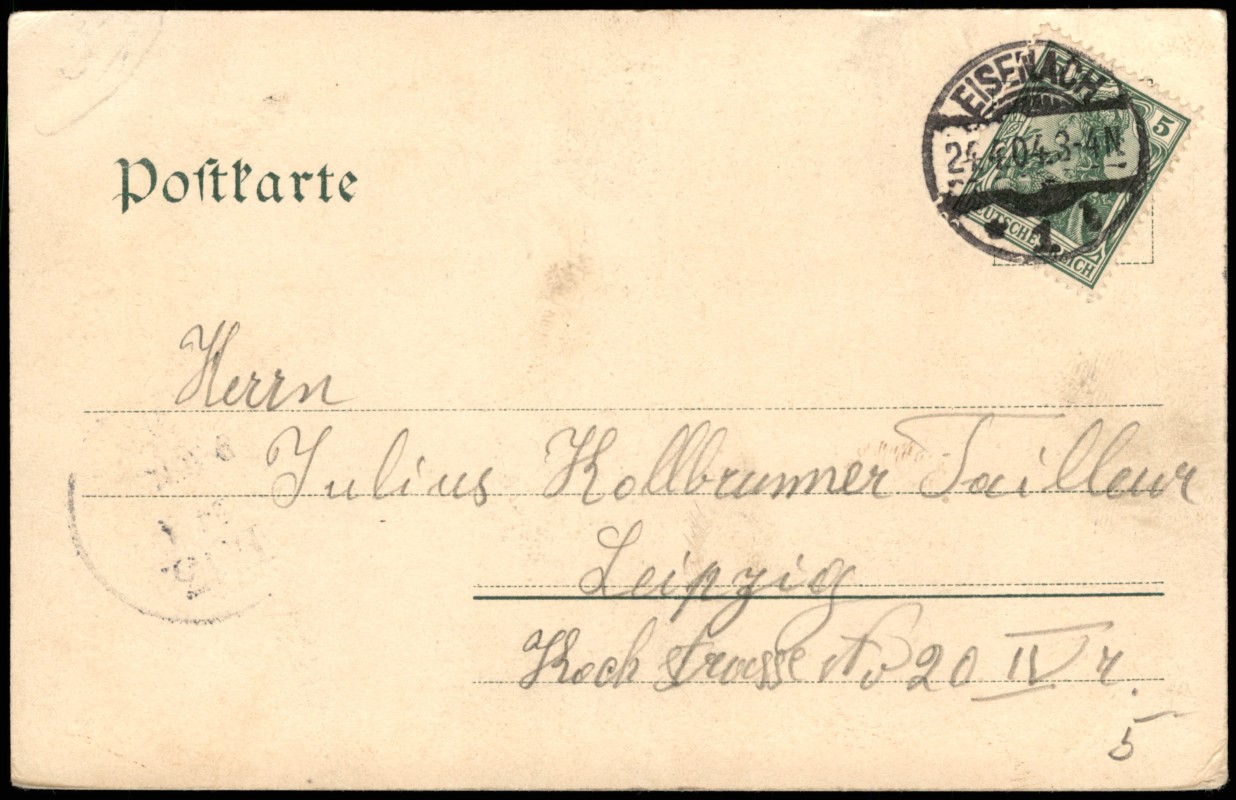 Postkarte
EISENACH
24.4.04.3-4N
* 1. b
5
DEUTSCHES REICH
Herrn
Julius Kollbrunner Tailleur
Leipzig
Koch strasse No 20 IV r.
5